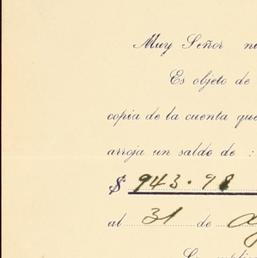 Muy Señor
Es objeto de
copia de la cuenta que
arroja un saldo de :
$ 943.98
al 31 de